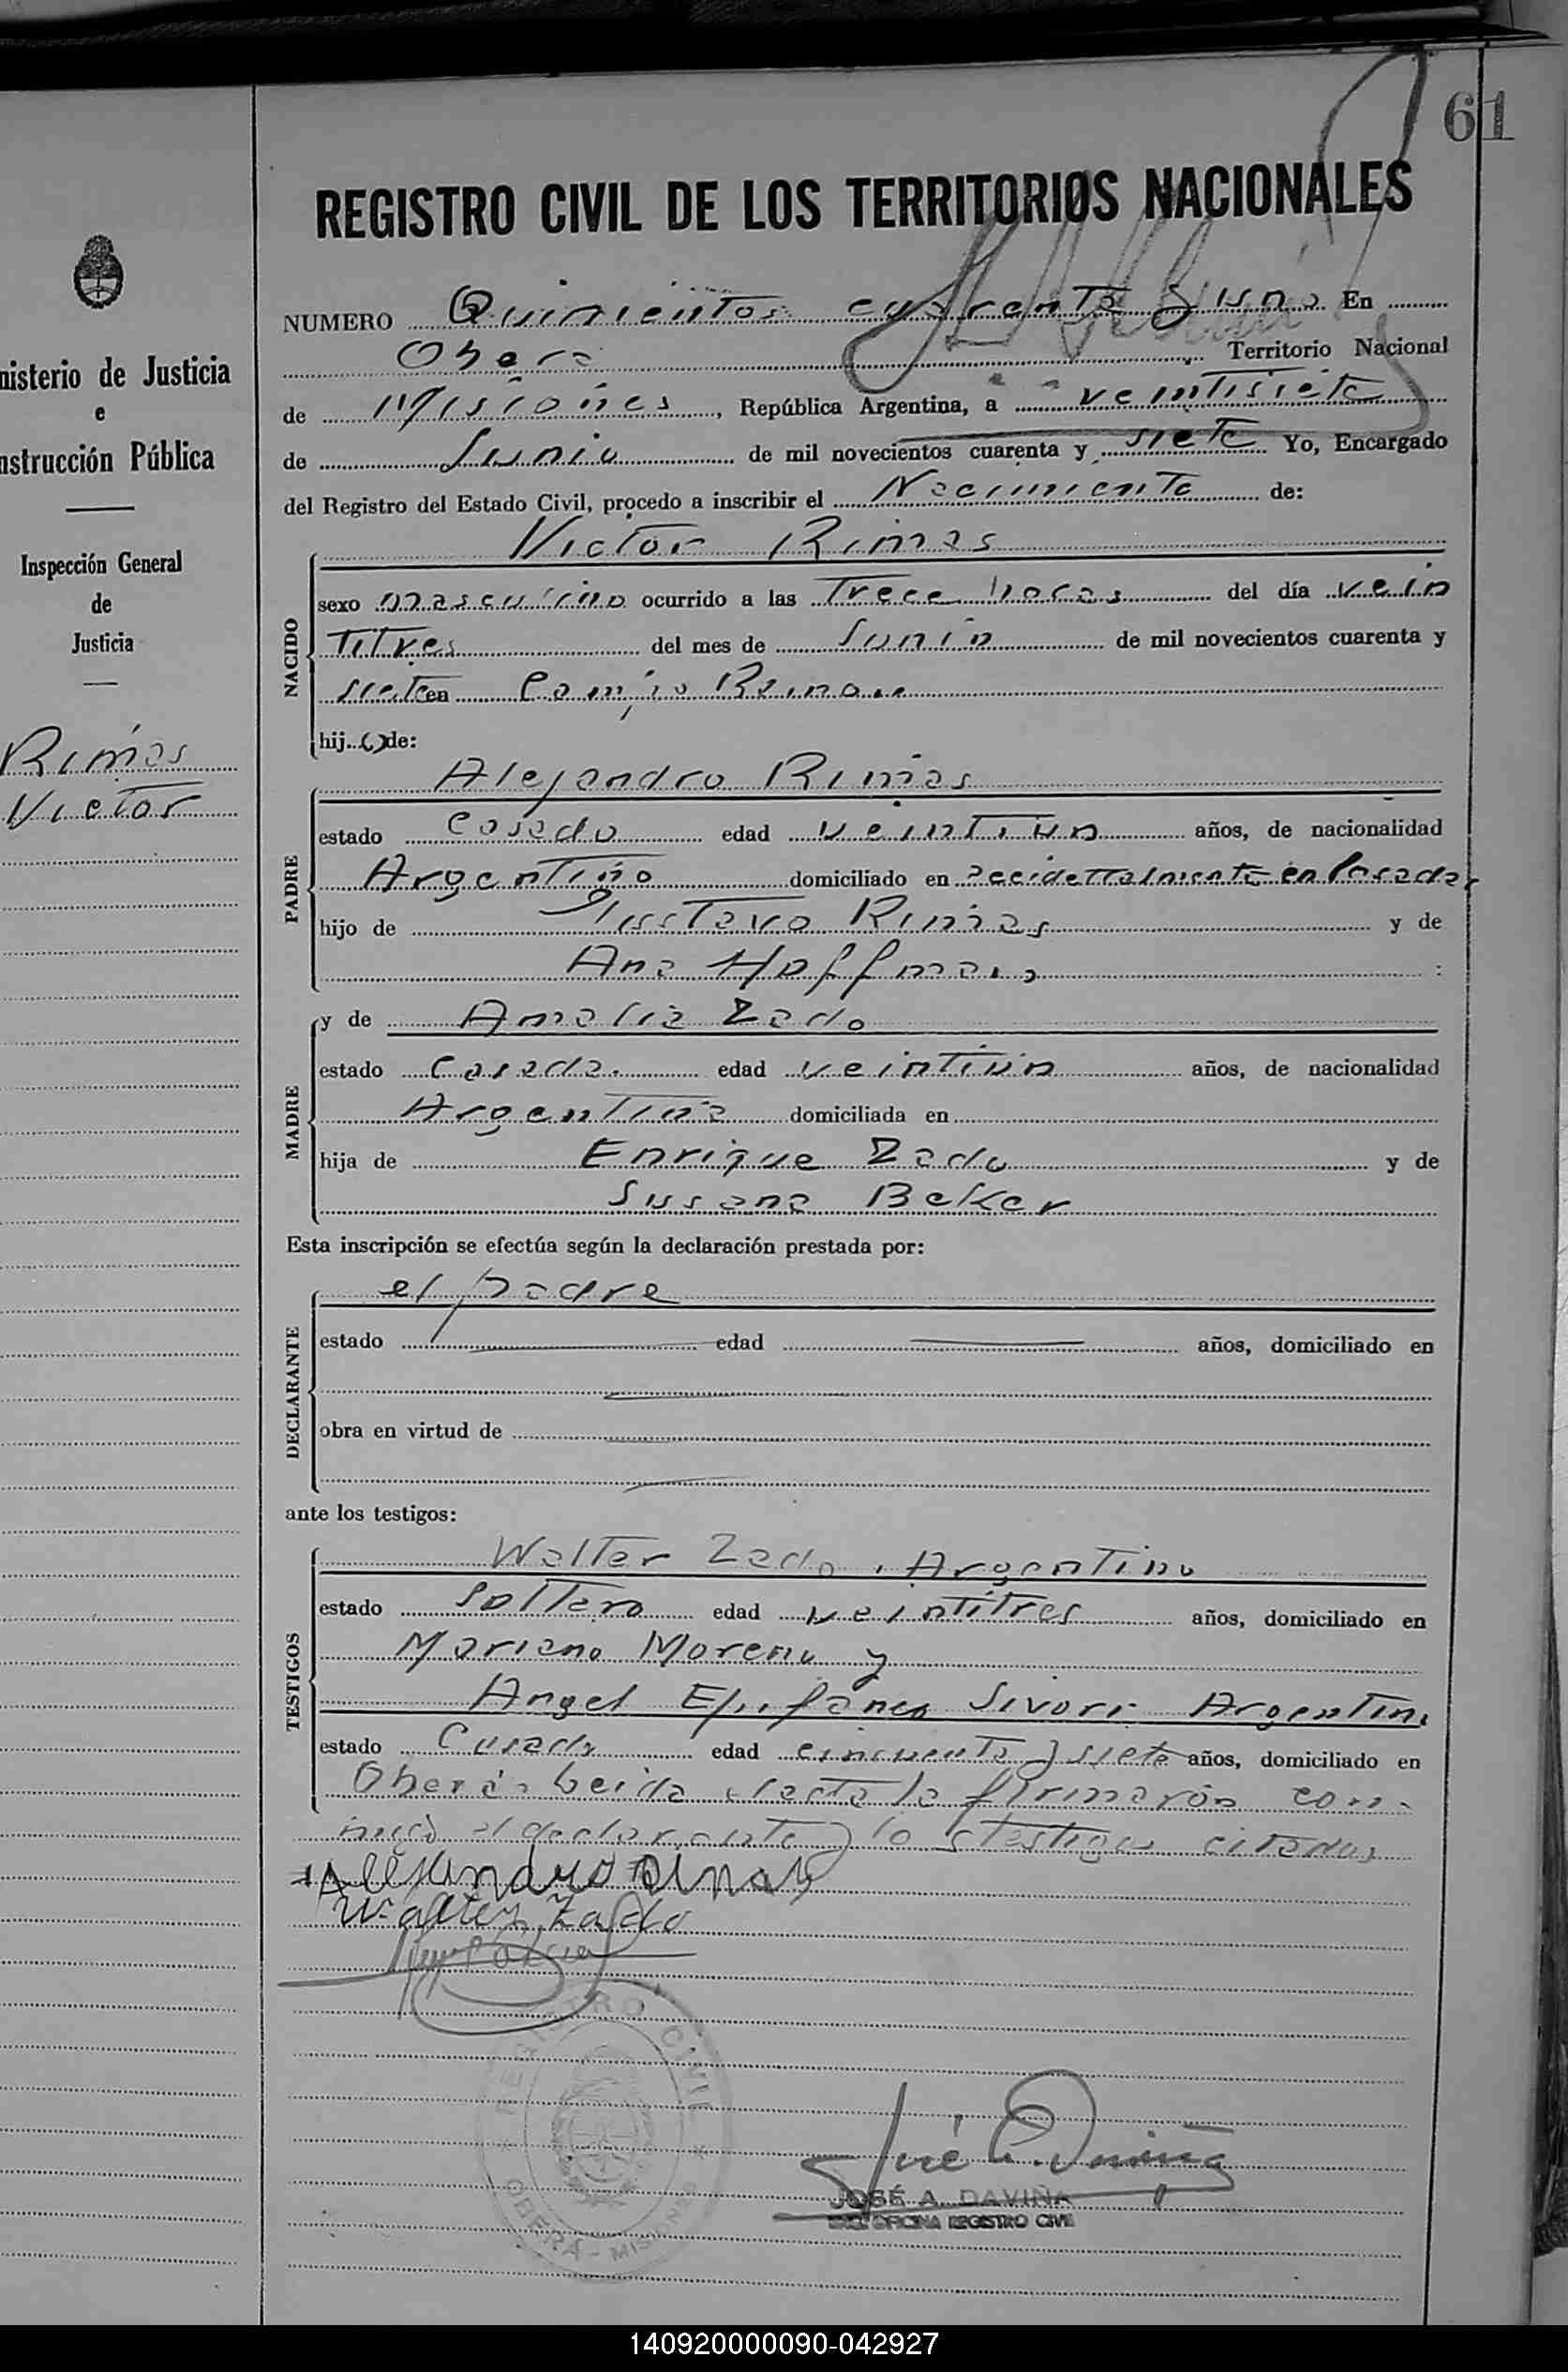 61
REGISTRO CIVIL DE LOS TERRITORIOS NACIONALES
NUMERO Quinientos cuarenta y uno En
Oberá Territorio Nacional
de Misiones, República Argentina, a veintisiete
de Junio de mil novecientos cuarenta y siete Yo, Encargado
del Registro del Estado Civil, procedo a inscribir el Nacimiento de:
nisterio de Justicia
e
nstrucción Pública
Inspección General
de
Justicia
Rimas
Victor
NACIDO
Victor Rimas
sexo masculino ocurrido a las Trece horas del día vein
titres del mes de Junio de mil novecientos cuarenta y
siete en Campo
hij o de:
PADRE
Alejandro Rimas
estado Casado edad veintiun años, de nacionalidad
Argentino domiciliado en en Posadas
hijo de Gustavo Rimas y de
Ana Hoffman
MADRE
y de Amalia Zado
estado Casada edad veintiun años, de nacionalidad
Argentina domiciliada en
hija de Enrique Zado y de
Susana Beker
Esta inscripción se efectúa según la declaración prestada por:
DECLARANTE
el padre
estado edad años, domiciliado en
obra en virtud de
ante los testigos:
TESTIGOS
Walter Zado, Argentino
estado Soltero edad veintitres años, domiciliado en
Mariano Moreno y
Angel Epifaneo Sivori Argentino
estado Casado edad cincuenta y siete años, domiciliado en
Oberá leida el acta la firmaron con-
migo el declarante y los testigos citados
Alejandro Rimas
Walter Zado
REGISTRO CIVIL
OBERÁ - MISIONES
José A. Daviña
JOSÉ A. DAVIÑA
OFICINA REGISTRO CIVIL
140920000090-042927